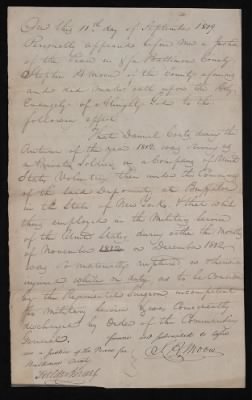 On this 11th day of September 1819
Personally appeared before me a Justice
of the Peace in & for County
Stephen H Moore of the County aforesaid
and did make oath upon the Holy
Evangely of Almighty God to the
following effect
That Daniel during the
Autumn of the year 1812 was serving as
a Private Soldier in a Company of United
States Volunteers then under the Command
of the said Deponent, at Buffaloe
in the State of New York, & that whilst
thus employed in the Military Service
of the United States, during either the months
of November 1812 or December 1812
was so materially ruptured or otherwise
injured while on duty as to be considered
by the Regimental Surgeon incompetent
for Military service & was Consequently
discharged by Order of the Commanding
General. Sworn and subscribed to before
me a Justice of the Peace for S. H Moore